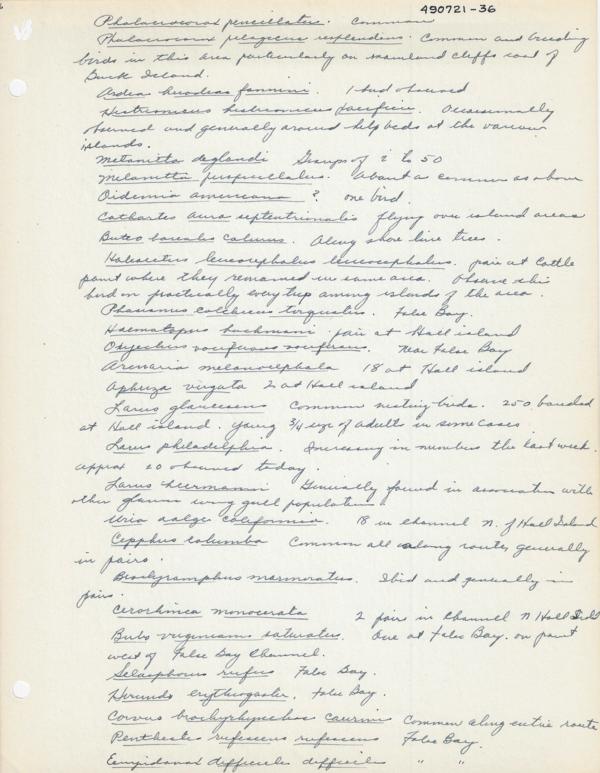 490721-36
Phalacrocorax pencillatus. Common
Phalacrocorax pelagicus resplendens. Common and breeding
birds in this area particularly on mainland cliffs east of
Buck Island.
Ardea herodias fannini. 1 bird observed
Histrionicus histrionicus pacificus. Occasionally
observed and generally around kelp beds at the various
islands.
Melanitta deglandi Groups of 2 to 50
Melanitta perspicillata. About as common as above
Oidemia americana ? one bird.
Cathartes aura septentrionalis flying over island areas
Buteo borealis calurus. Along shore line trees.
Haliaeetus leucocephalus leucocephalus. pair at Cattle
point where they remained in same area. Observe this
bird on practically every trip among islands of the area.
Phasianus colchicus torquatus. False Bay.
Haematopus bachmani pair at Hall island
Oxyechus vociferous vociferous. Near False Bay
Arenaria melanocephala 18 at Hall island
Aphriza virgata 2 at Hall island
Larus glaucescens Common nesting birds. 250 banded
at Hall island. Young 3/4 size of adults in some cases
Larus philadelphia. Increasing in numbers the last week.
approx 20 observed today.
Larus heermanni Generally found in association with
other glaucus wing gull populations.
Uria aalge californica. 18 in channel N. of Hall Island
Cepphus columba Common all along route, generally
in pairs
Brachyramphus marmoratus. Ibid and generally in
pairs.
Cerorhinca monocerata 2 pair in Channel N Hall Isld
Bubo virginianus saturatus. One at False Bay. on point
west of False Bay Channel.
Selasphorus rufus False Bay.
Hirundo erythrogaster. False Bay.
Corvus brachyrhynchos caurinus Common along entire route
Penthestes rufescens rufescens False Bay.
Empidonax difficilis difficilis " "